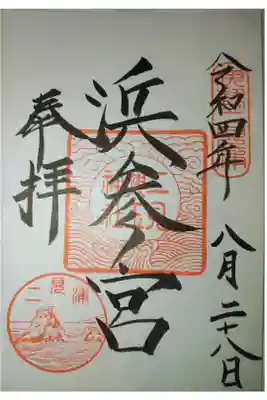 令和四年
八月二十八日
浜参宮
奉拝
二見浦